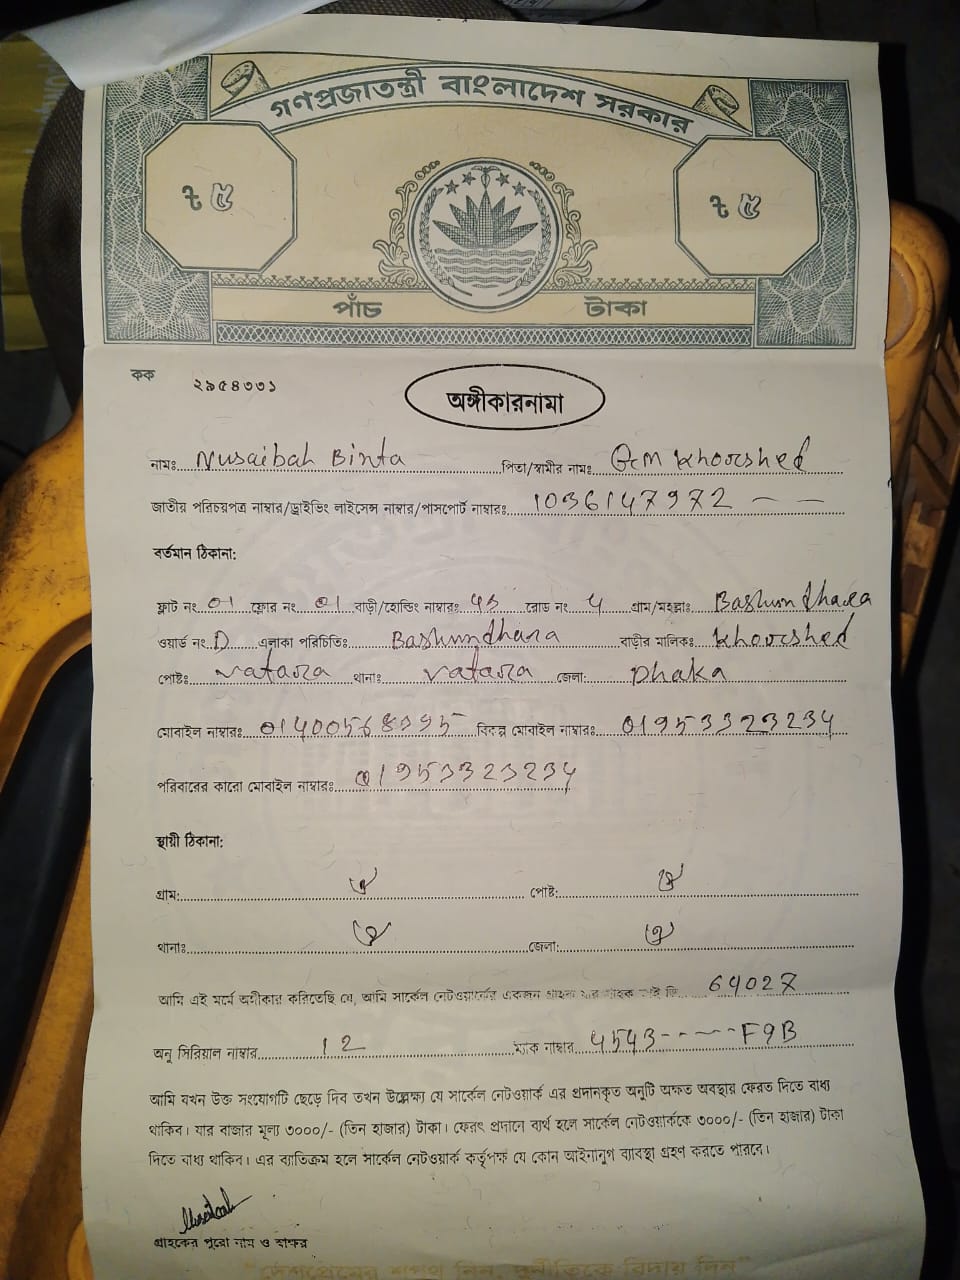 গণপ্রজাতন্ত্রী বাংলাদেশ সরকার
৳ ৫ ৳ ৫
পাঁচ টাকা
কক ২৯৫৪৩৩১
অঙ্গীকারনামা
নামঃ Nusaibah Binta পিতা/স্বামীর নামঃ GM Khorshed
জাতীয় পরিচয়পত্র নাম্বার/ড্রাইভিং লাইসেন্স নাম্বার/পাসপোর্ট নাম্বারঃ 1036147972
বর্তমান ঠিকানা:
ফ্লাট নং 01 ফ্লোর নং 01 বাড়ী/হোল্ডিং নাম্বারঃ 43 রোড নং 4 গ্রাম/মহল্লাঃ Bashundhara
ওয়ার্ড নং D এলাকা পরিচিতিঃ Bashundhara বাড়ীর মালিকঃ Khorshed
পোষ্টঃ Vatara থানাঃ Vatara জেলা: Dhaka
মোবাইল নাম্বারঃ বিকল্প মোবাইল নাম্বারঃ 01953323234
পরিবারের কারো মোবাইল নাম্বারঃ 01953323234
স্থায়ী ঠিকানা:
গ্রাম: ঐ পোষ্ট: ঐ
থানাঃ ঐ জেলা: ঐ
আমি এই মর্মে অঙ্গীকার করিতেছি যে, আমি সার্কেল নেটওয়ার্কের একজন গ্রাহক যার গ্রাহক আই ডি 64027
অনু সিরিয়াল নাম্বার 12 ম্যাক নাম্বার 4543-----F9B
আমি যখন উক্ত সংযোগটি ছেড়ে দিব তখন উল্লেক্ষ্য যে সার্কেল নেটওয়ার্ক এর প্রদানকৃত অনুটি অক্ষত অবস্থায় ফেরত দিতে বাধ্য
থাকিব। যার বাজার মূল্য ৩০০০/- (তিন হাজার) টাকা। ফেরৎ প্রদানে ব্যর্থ হলে সার্কেল নেটওয়ার্ককে ৩০০০/- (তিন হাজার) টাকা
দিতে বাধ্য থাকিব। এর ব্যতিক্রম হলে সার্কেল নেটওয়ার্ক কর্তৃপক্ষ যে কোন আইনানুগ ব্যবস্থা গ্রহণ করতে পারবে।
Nusaibah
গ্রাহকের পুরো নাম ও স্বাক্ষর
"দেশপ্রেমের শপথ নিন, দুর্নীতিকে বিদায় দিন"